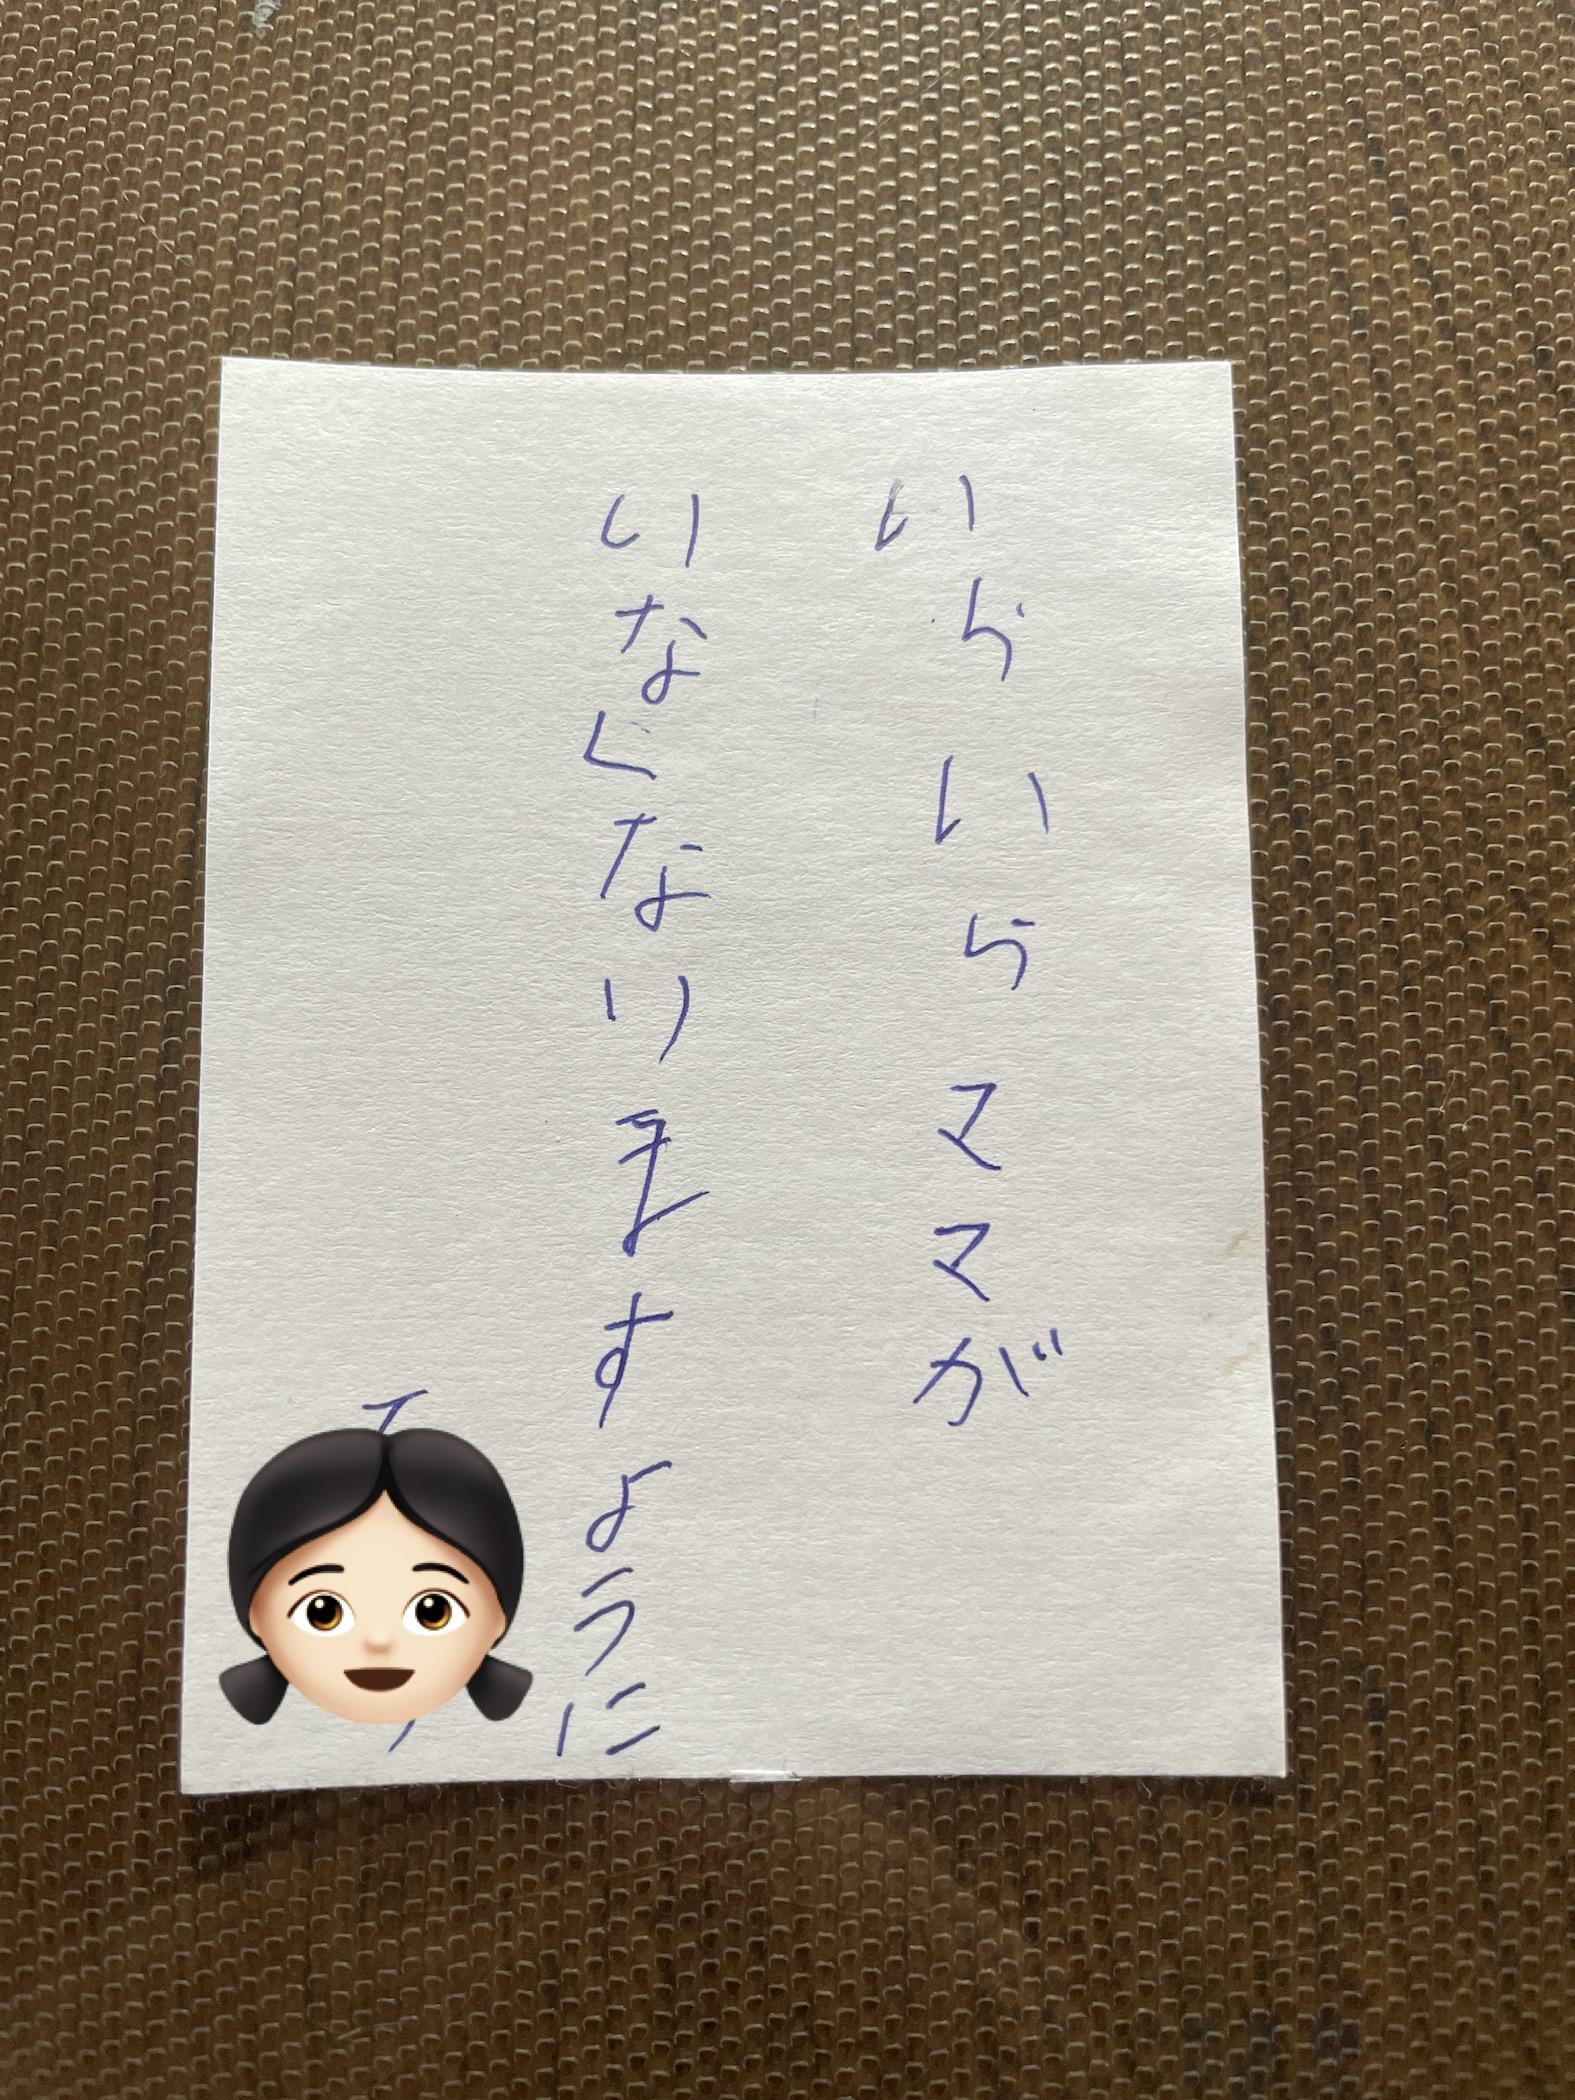 いらいらママが
いなくなりますように